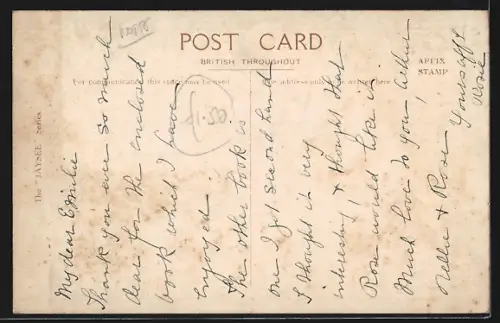 POST CARD
BRITISH THROUGHOUT
AFFIX
STAMP
For communication this space may be used
The address only to be written here
The "JAYSEE" Series
£1.50
My dear Emilie
Thank you ever so much
dear for the enclosed
book which I have
enjoyed.
The other book is
one I got second hand
I thought it very
interesting, & thought that
Rose would like it.
Much love to you,
Nellie & Rose
Yours aff
Rosie